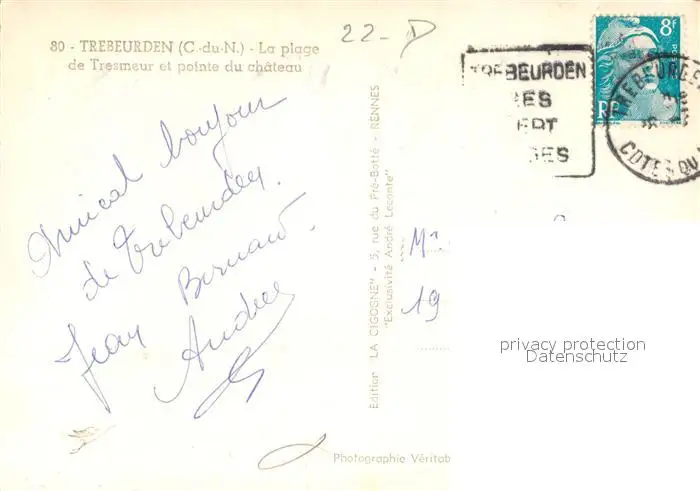 80 - TREBEURDEN (C.-du-N.) - La plage
de Tresmeur et pointe du château
22- D
8F
RF
TREBEURDEN
RES
ERT
GES
TREBEURDEN
COTES DU N
Amical bonjour
de Trebeurden.
Jean Bernard.
Andrée
Edition "LA CIGOGNE" - 5, rue du Pré-Botté - RENNES
"Exclusivité André Leconte"
Mr
19
privacy protection
Datenschutz
Photographie Véritab